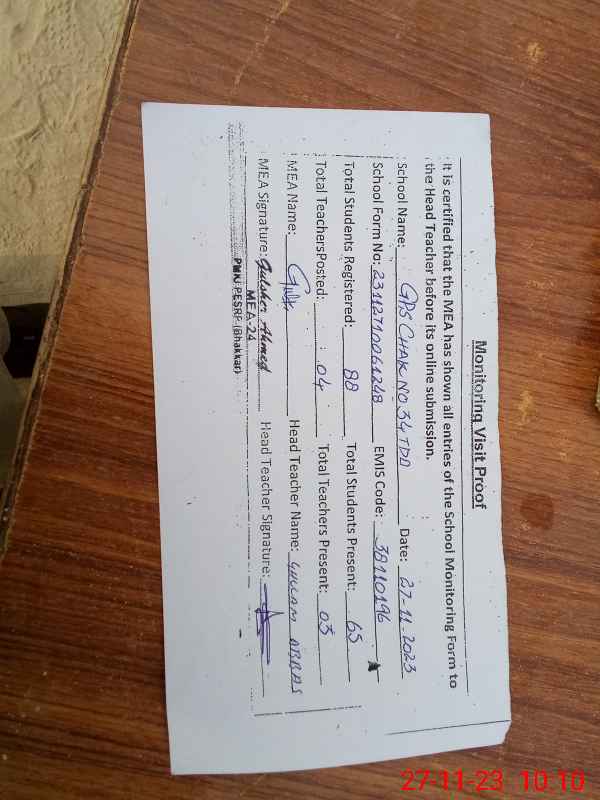 Monitoring Visit Proof
It is certified that the MEA has shown all entries of the School Monitoring Form to
the Head Teacher before its online submission.
School Name: GPS CHAK NO 34 TDA Date: 27-11-2023
School Form No: 23112710061248 EMIS Code: 38110196
Total Students Registered: 88 Total Students Present: 65
Total TeachersPosted: 04 Total Teachers Present: 03
MEA Name: Head Teacher Name: GHULAM ABBAS
MEA Signature: Gulsher Ahmed Head Teacher Signature:
MEA-24
PMIU PESRP (Bhakkar)
27-11-23 10:10